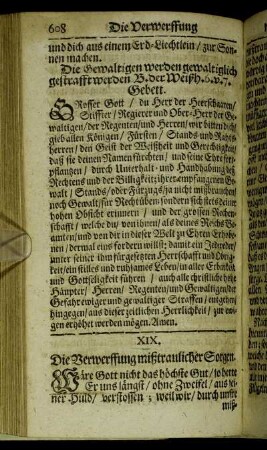 608 Die Verwerffung
und dich aus einem Erd-Liechtlein / zur Son-
nen machen.
Die Gewaltigen werden gewaltiglich
gestrafft werden B. der Weißh. 6. v. 7.
Gebett.
GRosser Gott / du Herr der Herrscharen /
Stiffter / Regierer und Ober-Herr der Ge-
waltigen / der Regenten / und Herren / wir bitten dich /
gieb allen Königen / Fürsten / Stands und Raths-
herren / den Geist der Weißheit und Gerechtigkeit /
daß sie deinen Namen fürchten / und seine Ehr fort-
pflanzen / durch Unterhalt- und Handhabung deß
Rechtens und der Billigkeit; ihre empfangene Ge-
walt / Stands / oder Fürzugs / ja nicht mißbrauchen /
noch Gewalt für Recht üben / sondern sich stets deiner
hohen Obsicht erinnern / und der grossen Rechen-
schafft / welche du / von ihnen / als deines Reichs Be-
amten / und von dir in dieser Welt zu Ehren Erhobe-
nen / dermal eins fordern willst; damit ein Jedweder /
unter seiner ihm fürgesetzten Herrschafft und Obrig-
keit / ein stilles und ruhsames Leben / in aller Erbarkeit
und Gottseligkeit führen / auch alle christliche hohe
Häupter / Herren / Regenten / und Gewaltige / der
Gefahr ewiger und gewaltiger Straffen / entgehen /
hingegen / aus dieser zeitlichen Herrlichkeit / zur ewi-
gen erhöhet werden mögen. Amen.
XIX.
Die Verwerffung mißtraulicher Sorgen.
WAre Gott nicht das höchste Gut / so hette
Er uns längst / ohne Zweifel / aus sei-
ner Huld / verstossen; weil wir / durch unser
miß-